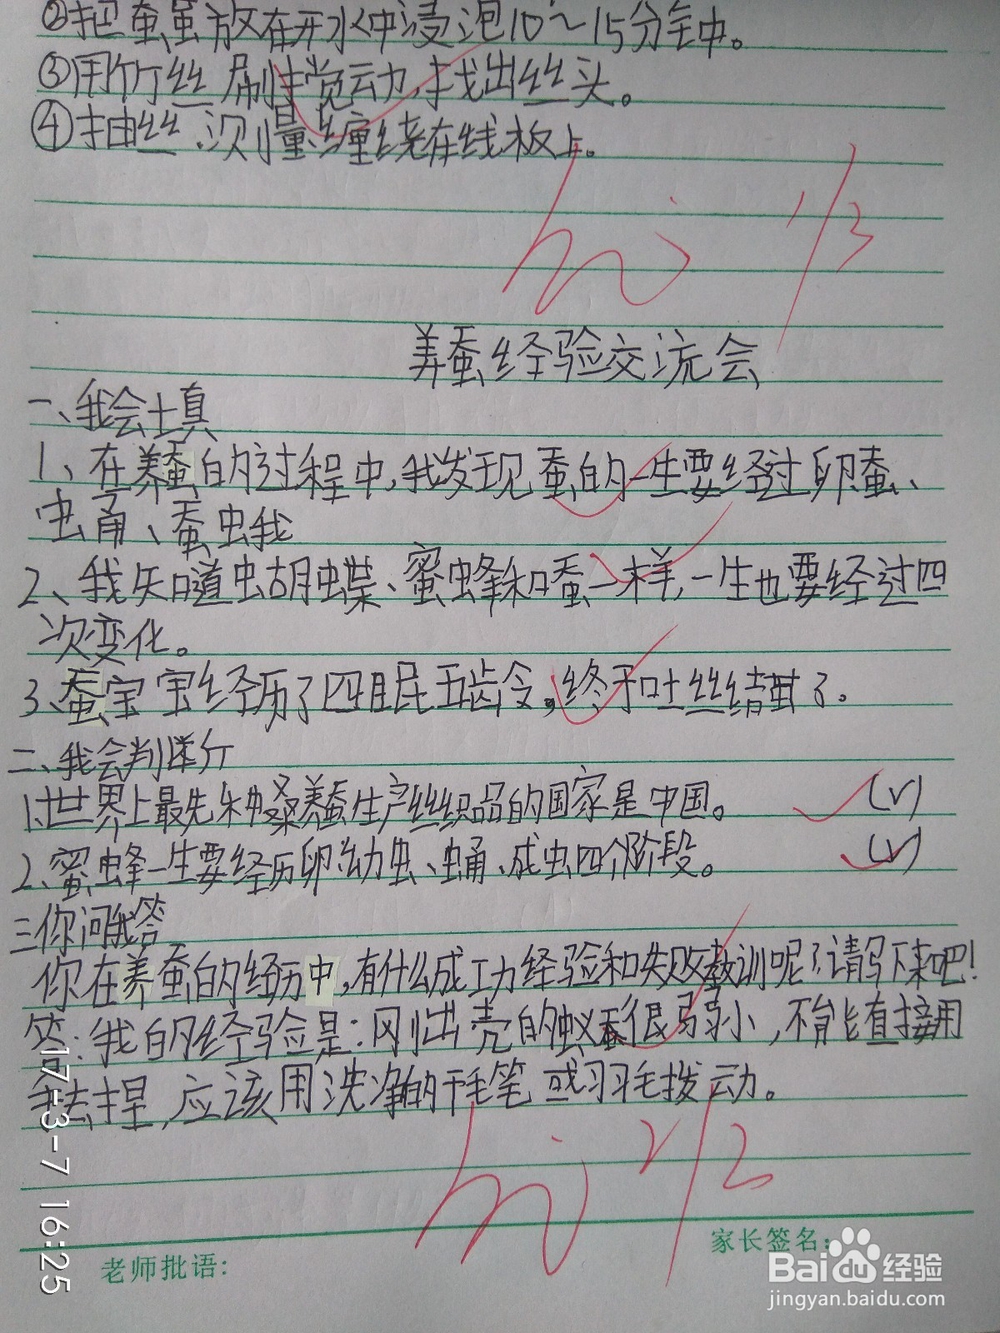 ②把蚕茧放在开水中浸泡10～15分钟中。
③用竹丝刷触觉动,找出丝头。
④抽丝.测量缠绕在线板上。
1/3
养蚕经验交流会
一、我会填
1、在养蚕的过程中,我发现蚕的一生要经过卵蚕、
蛹、蚕蛾
2、我知道蝴蝶、蜜蜂和蚕一样,一生也要经过四
次变化。
3、蚕宝宝经历了四眠五龄,终于吐丝结茧了。
二、我会判断
1、世界上最先种桑养蚕生产丝织品的国家是中国。 (√)
2、蜜蜂一生要经历卵、幼虫、蛹、成虫四个阶段。 (√)
三你问我答
你在养蚕的经历中,有什么成功经验和失败教训呢?请写下来吧!
答:我的经验是:刚出壳的蚁蚕很弱小,不能直接用
手去捏,应该用洗净的干毛笔或羽毛拨动。
2/3
老师批语:
家长签名:
17-3-7 16:25
Baidu经验
jingyan.baidu.com